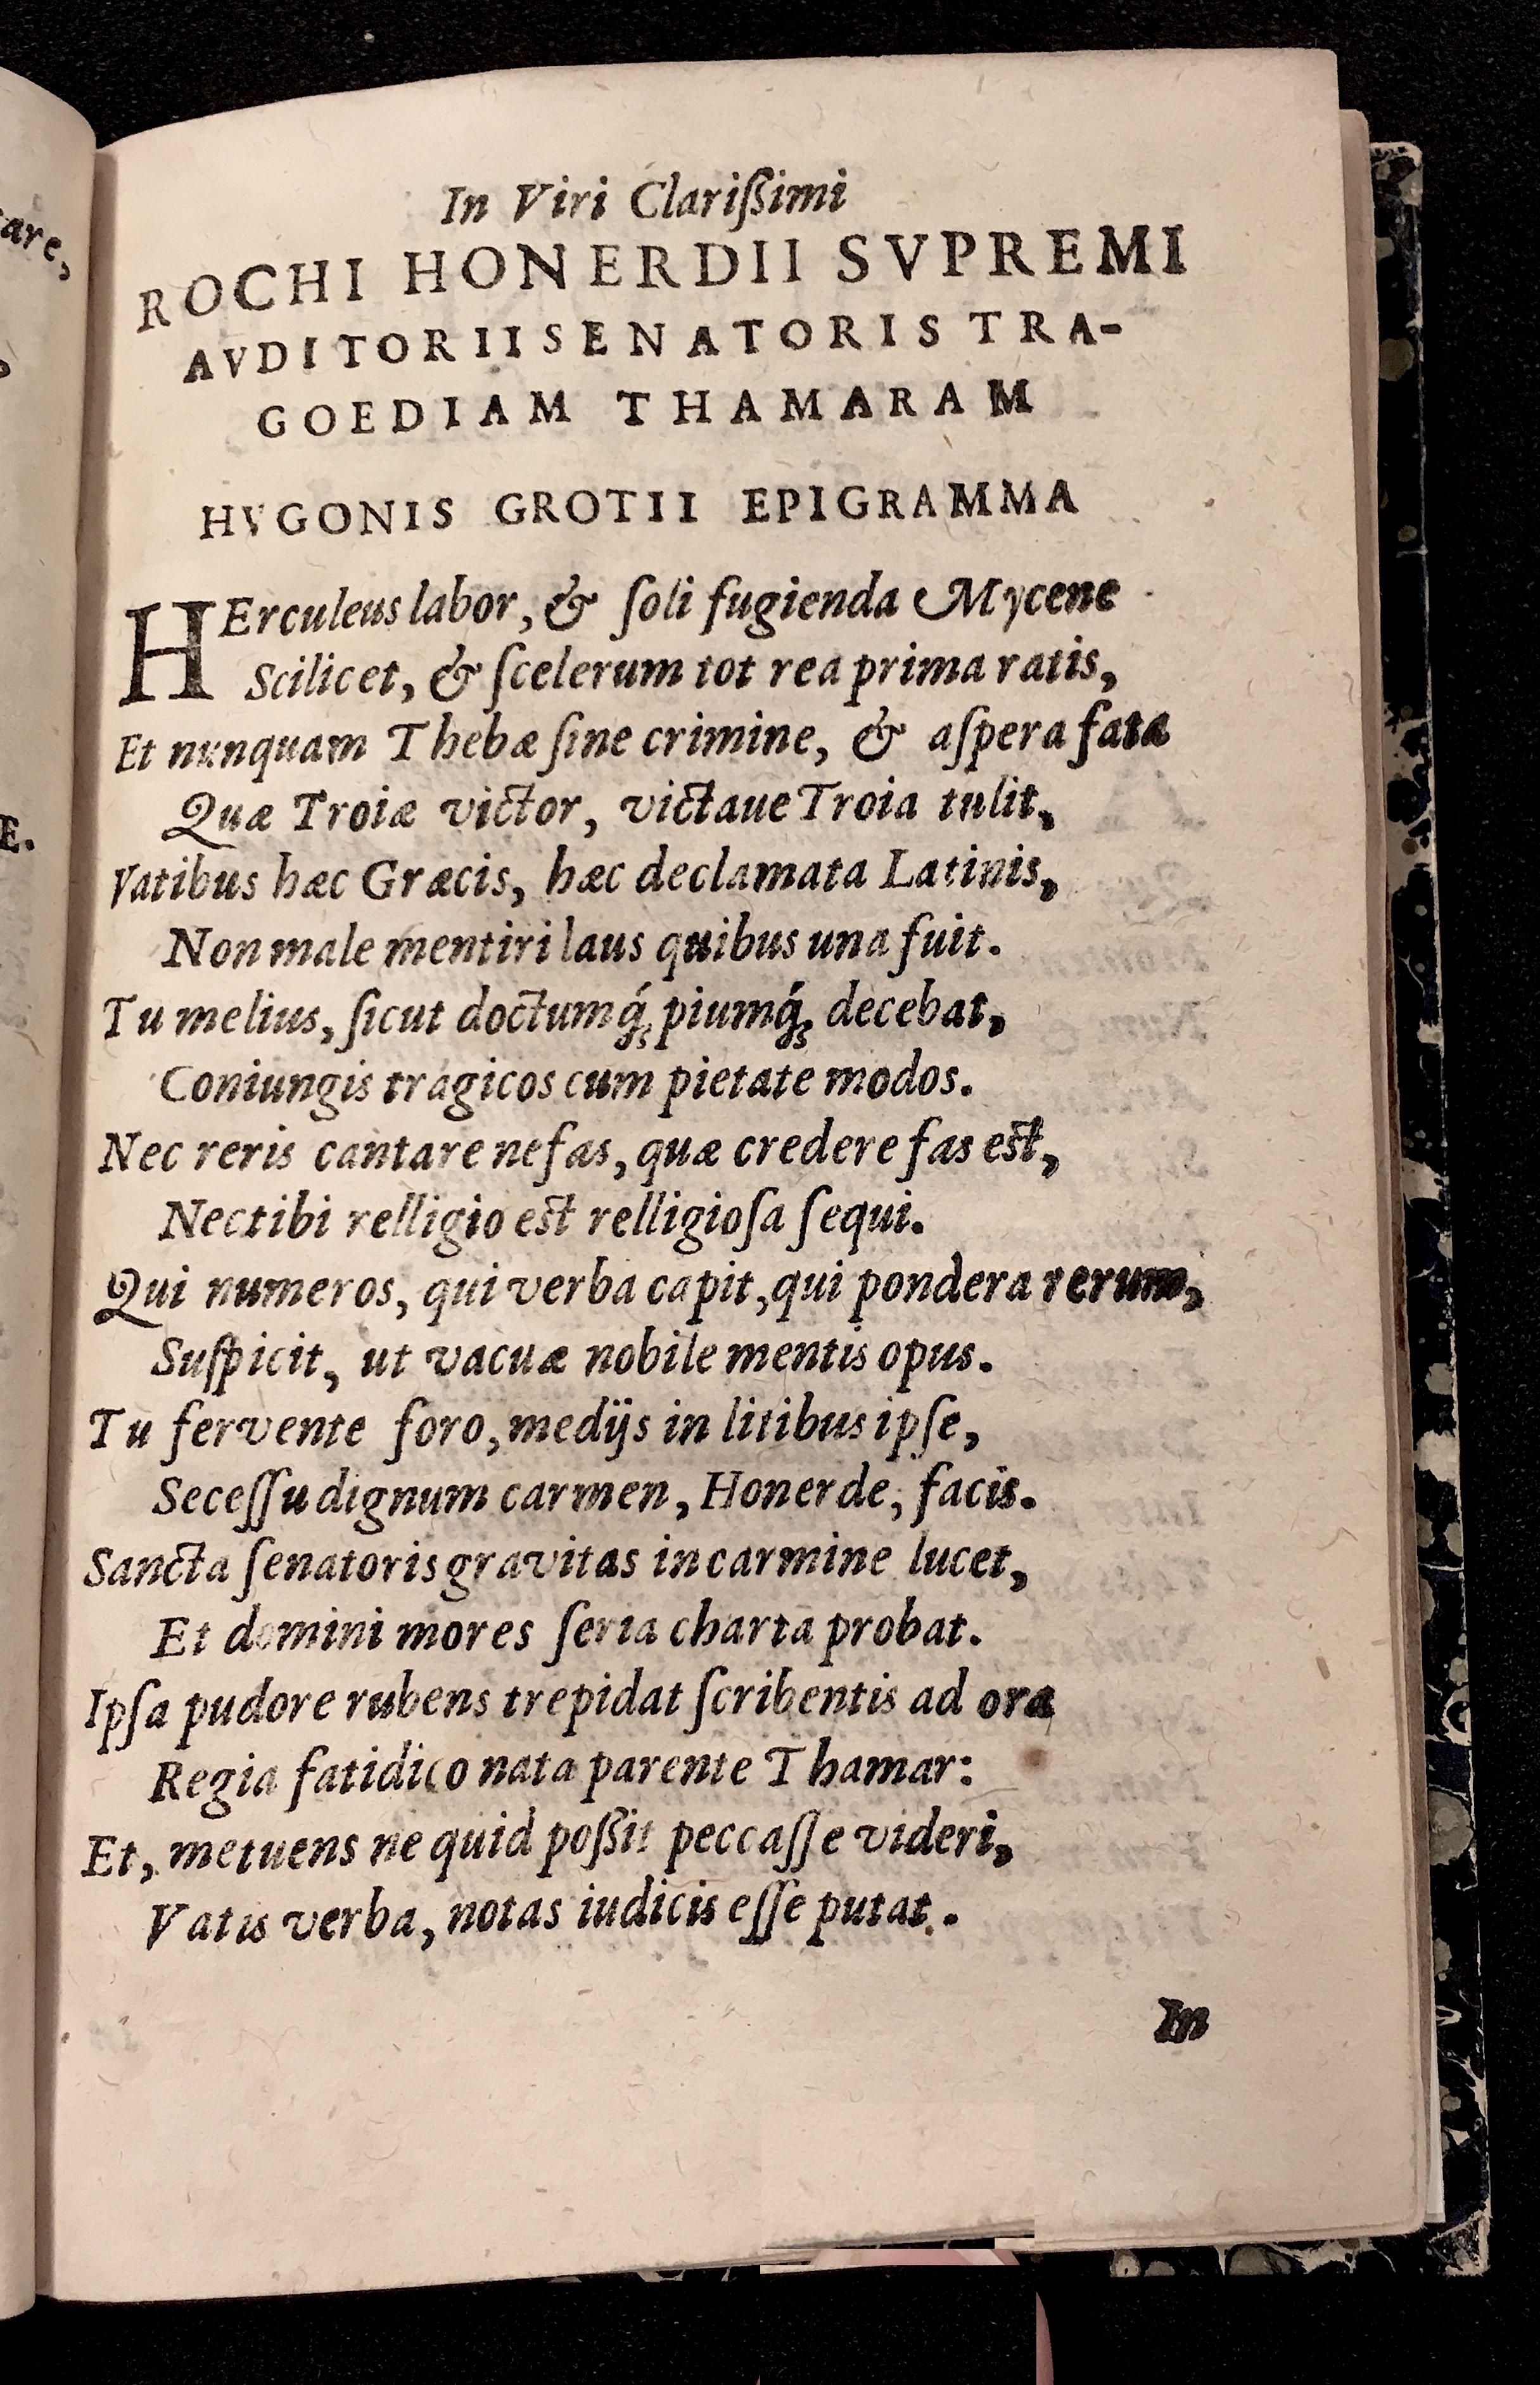 In Viri Clarißimi
ROCHI HONERDII SVPREMI
AVDITORII SENATORIS TRA-
GOEDIAM THAMARAM
HVGONIS GROTII EPIGRAMMA
HErculeus labor, & ſoli fugienda Mycene
Scilicet, & ſcelerum tot rea prima ratis,
Et nunquam Thebæ ſine crimine, & aſpera fata
Quæ Troiæ victor, victaue Troia tulit,
Vatibus hæc Græcis, hæc declamata Latinis,
Non male mentiri laus quibus una fuit.
Tu melius, ſicut doctumq́; piumq́; decebat,
Coniungis tragicos cum pietate modos.
Nec reris cantare nefas, quæ credere fas est,
Nec tibi relligio est relligioſa ſequi.
Qui numeros, qui verba capit, qui pondera rerum,
Suſpicit, ut vacuæ nobile mentis opus.
Tu fervente foro, medijs in litibus ipſe,
Seceſſu dignum carmen, Honerde, facis.
Sancta ſenatoris gravitas in carmine lucet,
Et domini mores ſeria charta probat.
Ipſa pudore rubens trepidat ſcribentis ad ora
Regia fatidico nata parente Thamar:
Et, metuens ne quid poßit peccaſſe videri,
Vatis verba, notas iudicis eſſe putat.
In
are,
E.